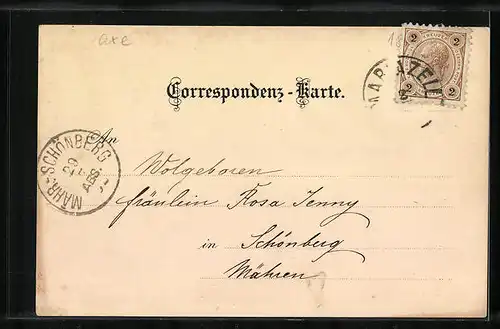 axe
18
2 2
MARIAZELL
Correspondenz-Karte.
An
MÄHR.-SCHÖNBERG
29
ABS
Wolgeboren
fräulein Rosa Jenny
in Schönberg
Mähren